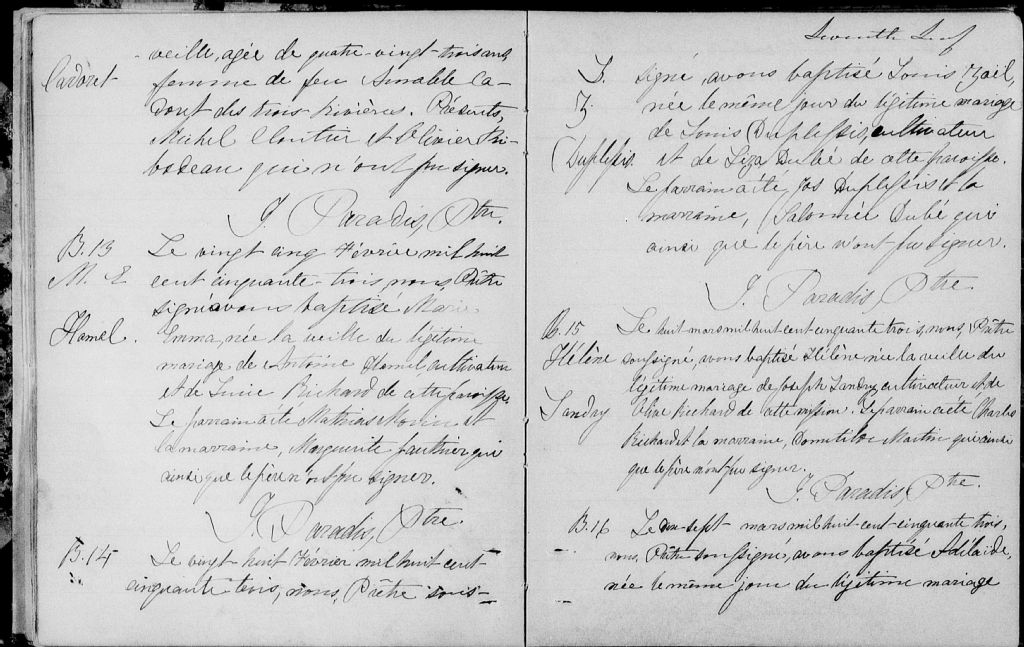 veille, agée de quatre-vingt-trois ans,
Cadoret
femme de feu Amable Ca-
doret des trois Rivières. Présents,
Michel Cloutier et Olivier Ri-
bodeau qui n'ont pu signer.
J. Paradis, Ptre.
B. 13
Le vingt cinq Février mil huit
M. E
cent cinquante-trois, nous Prêtre
signé avons baptisé Marie
Hamel.
Emma, née la veille du légitime
mariage de Antoine Hamel cultivateur
et de Lucie Richard de cette paroisse.
Le parrain a été Mathias Morin et
la marraine, Marguerite Gauthier qui
ainsi que le père n'ont pu signer.
J. Paradis, Ptre.
B. 14
Le vingt huit Février mil huit cent
cinquante trois, nous, Prêtre sous-
Seventh Leaf
L.
signé, avons baptisé Louis Zoël,
Z.
née le même jour du légitime mariage
de Louis Duplessis, cultivateur
Duplessis.
et de Liza Dubé de cette paroisse.
Le parrain a été, Jos Duplessis et la
marraine, Salomée Dubé qui
ainsi que le père n'ont pu signer.
J. Paradis, Ptre.
B. 15
Le huit mars mil huit cent cinquante trois, nous, Prêtre
Hélène
soussigné, avons baptisé Hélène née la veille du
légitime mariage de Joseph Landry cultivateur et de
Landry
Richard de cette mission. Le parrain a été Charles
Richard et la marraine, Domitilde Martin qui ainsi
que le père n'ont pu signer.
J. Paradis, Ptre.
B. 16
Le dix-sept mars mil huit-cent-cinquante trois,
nous, Prêtre soussigné, avons baptisé Adélaide,
née le même jour du légitime mariage